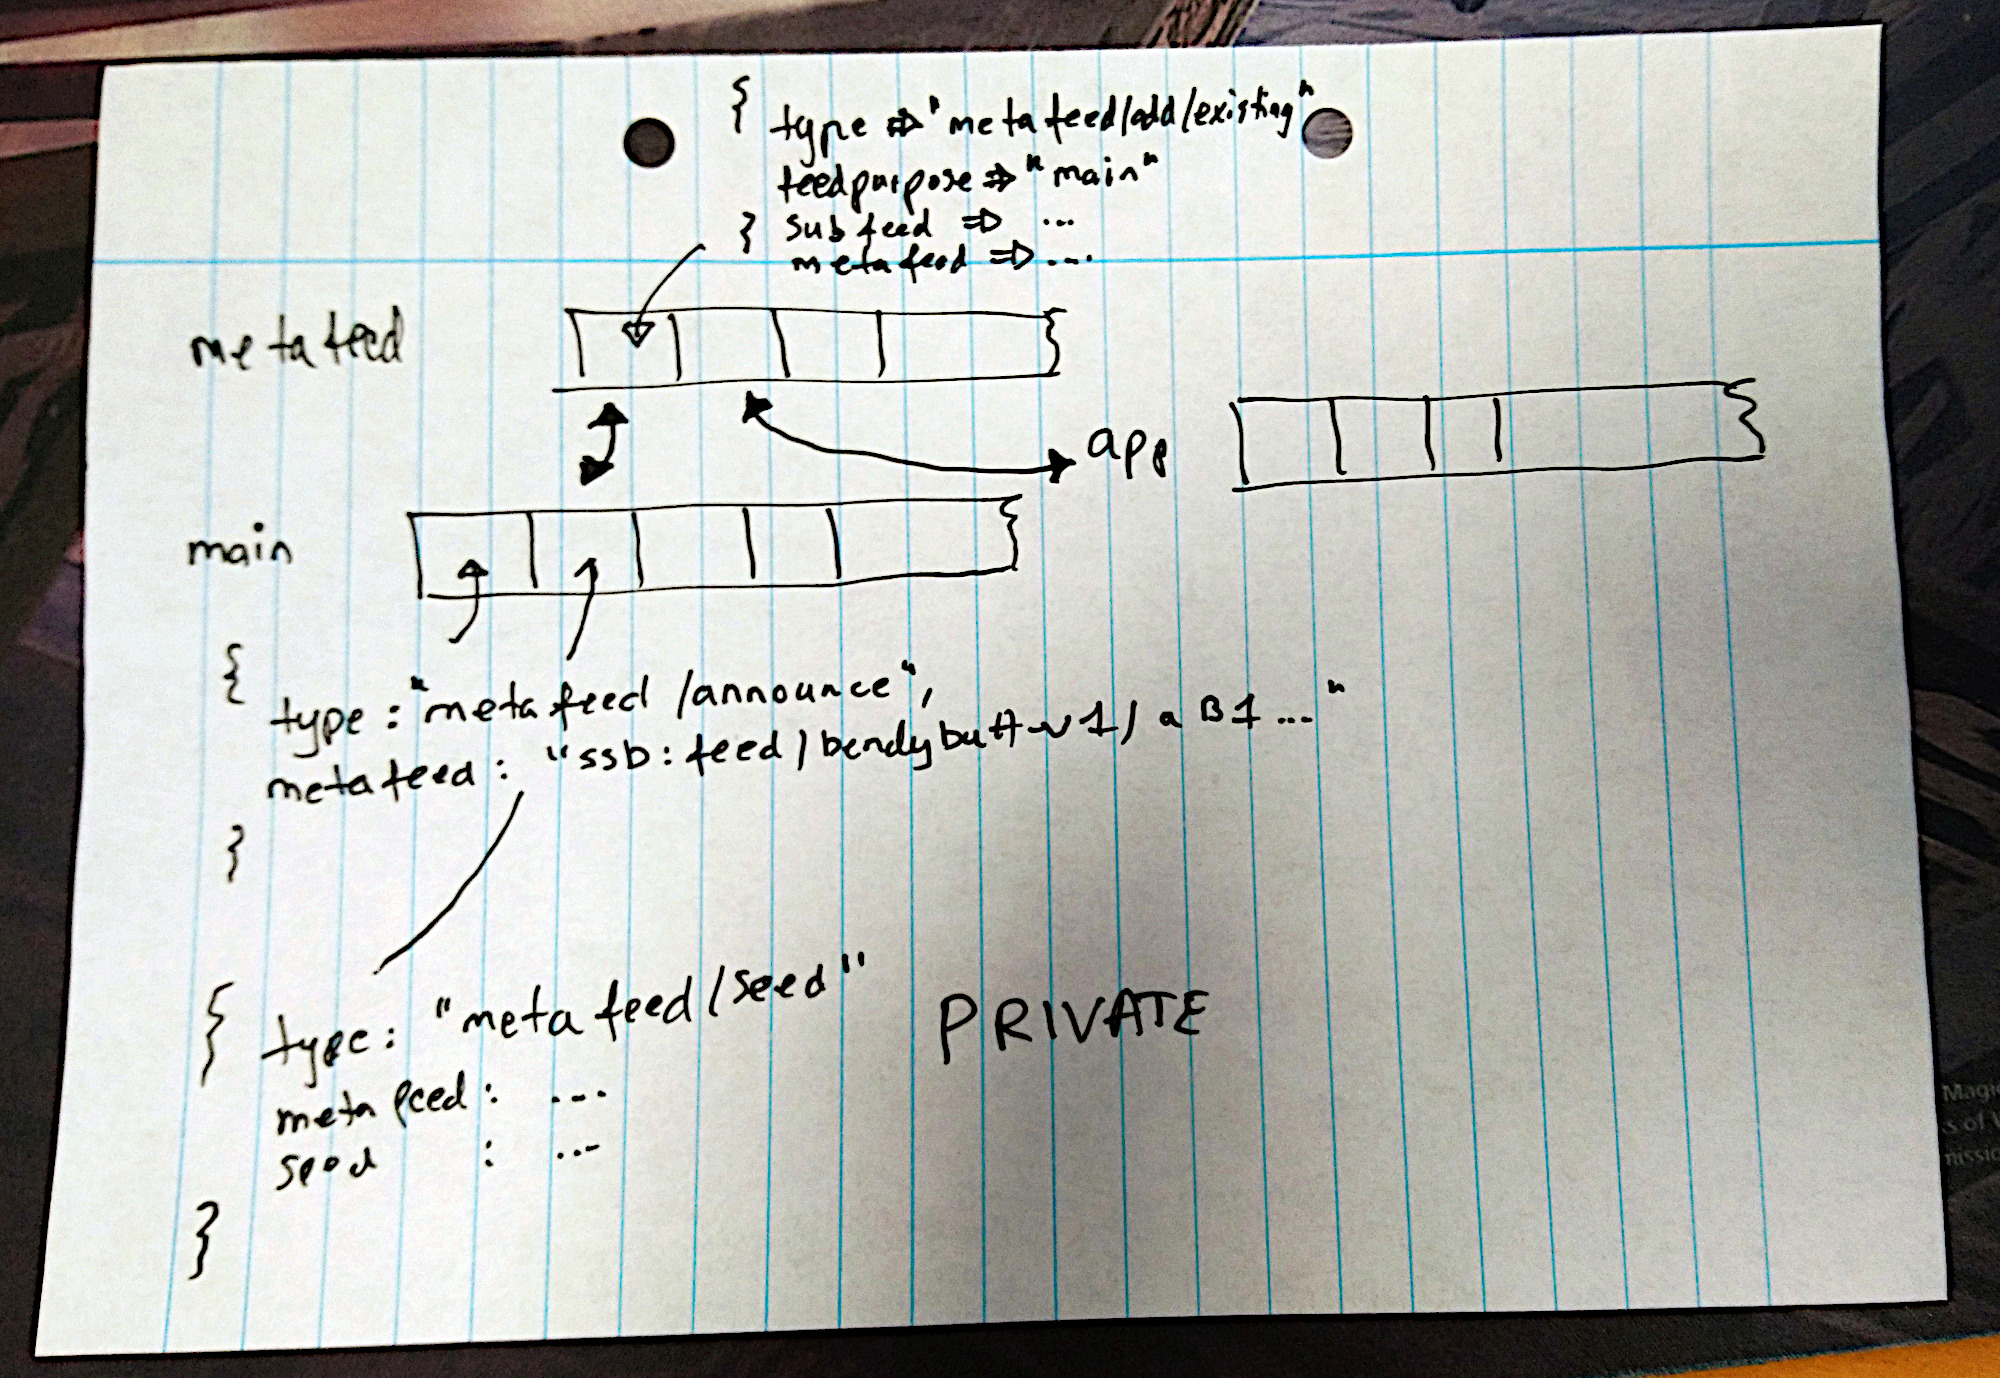 {
type => "metafeed/add/existing"
feedpurpose => "main"
} subfeed => ...
metafeed => ....
metafeed
app
main
{
type : "metafeed/announce",
metafeed : "ssb:feed/bendybutt-v1/aB1..."
}
{ type: "metafeed/seed"
PRIVATE
metafeed : ....
seed : ...
}
Magic
s of